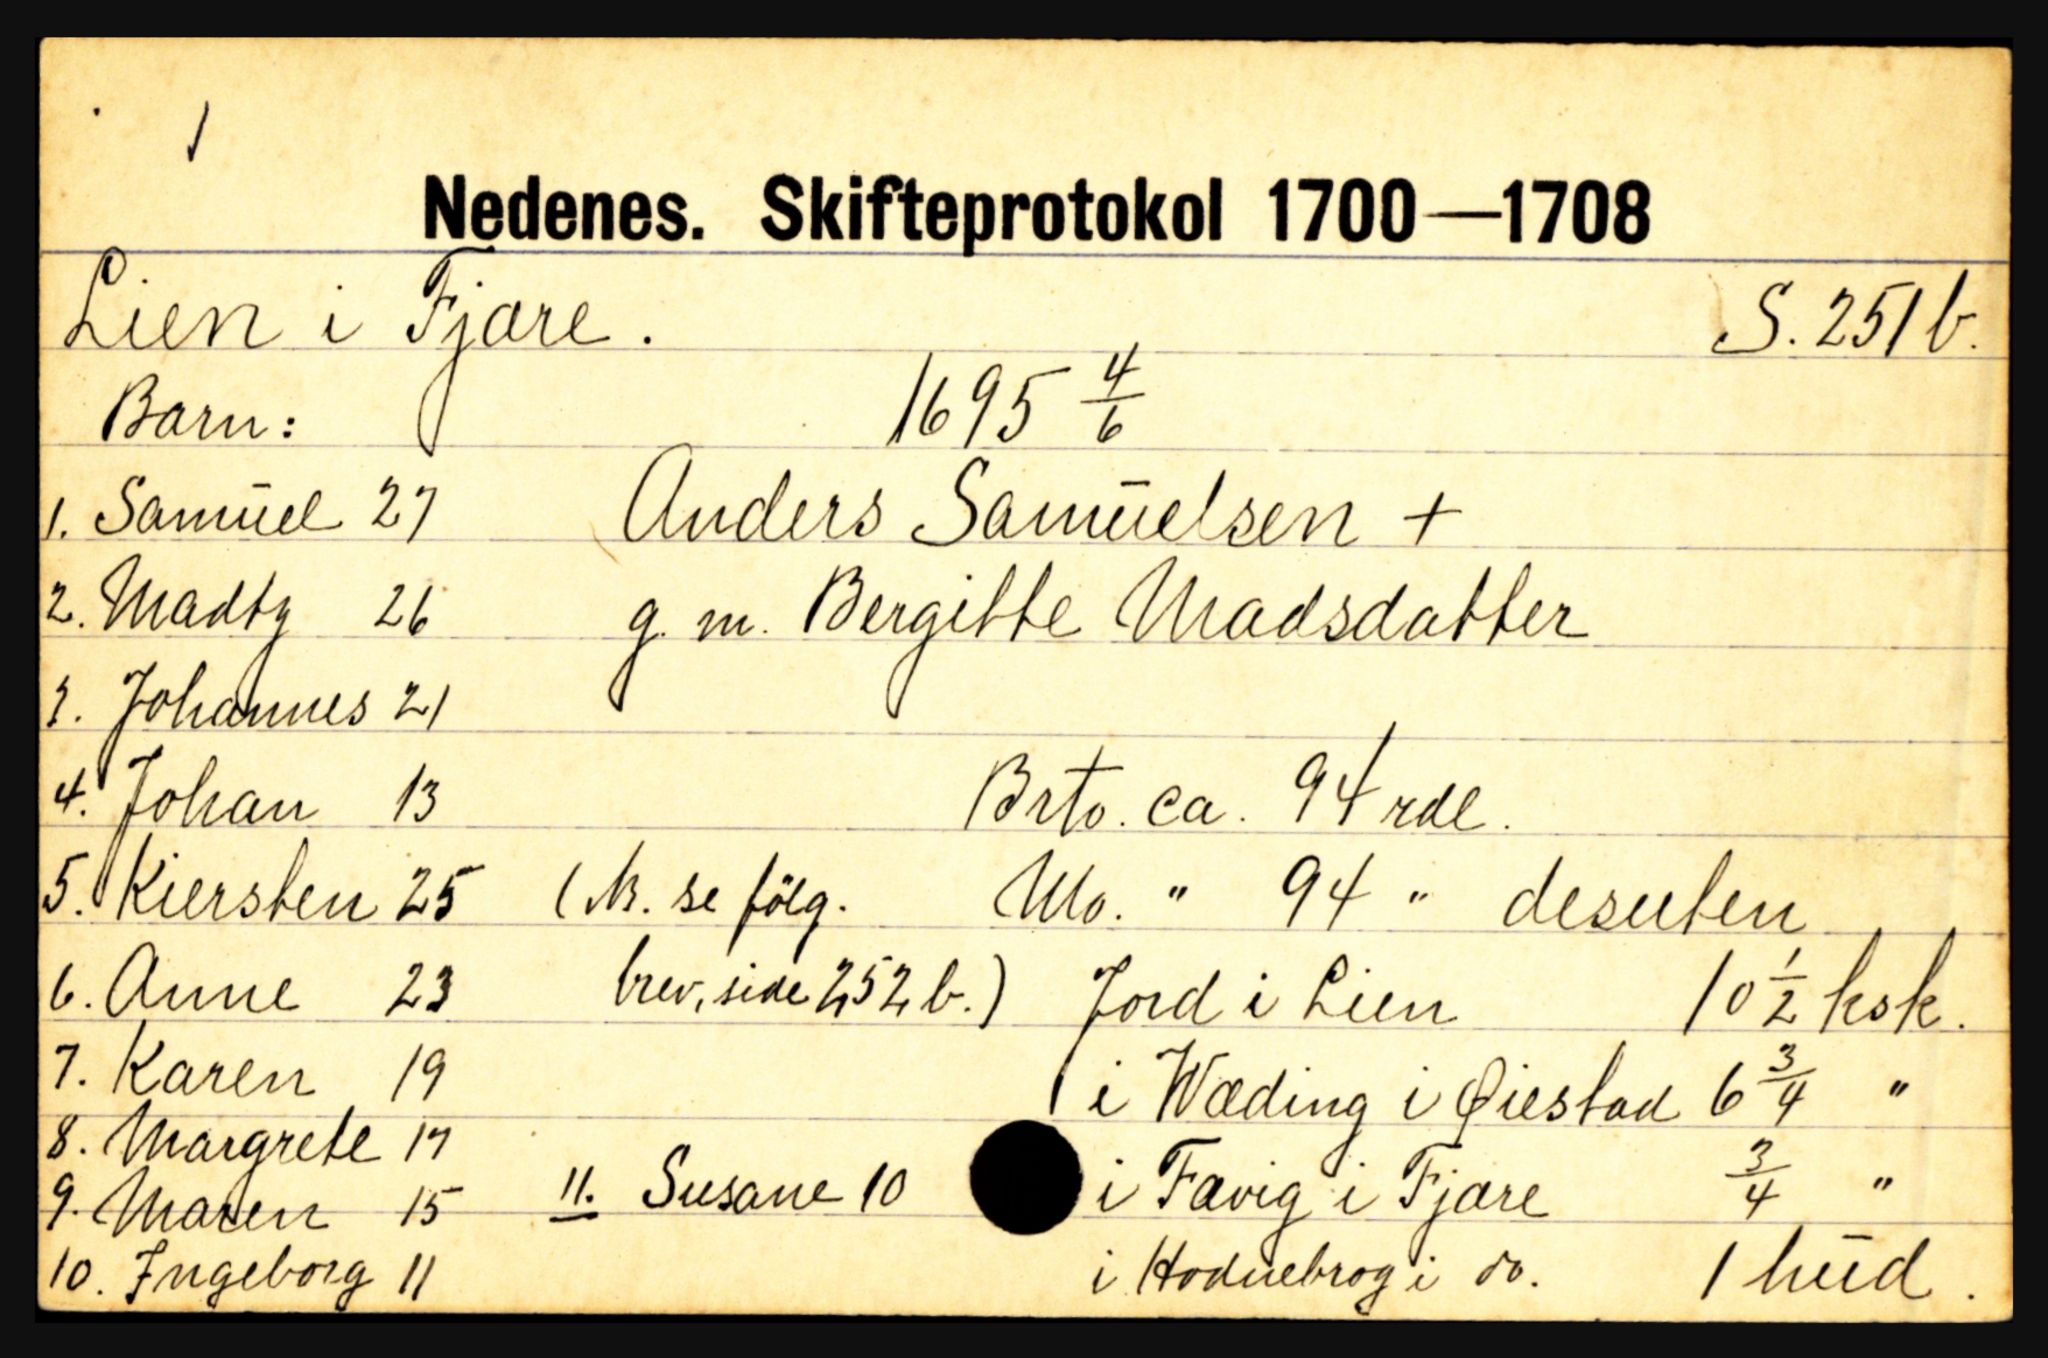 Nedenes. Skifteprotokol 1700—1708
Lien i Fjære. S. 251 b.
Barn: 1695 4/6
1. Samūel 27 Anders Samūelsen +
2. Madtz 26 g. m. Bergitte Madsdatter
3. Johannes 21
4. Johan 13 Brto. ca. 94 rdl.
5. Kiersten 25 (N. se følg. Nto. " 94 " desuten
6. Anne 23 brev, side 252 b.) Jord i Lien 10 1/2 ksk.
7. Karen 19 i Wæding i Øiestad 6 3/4 "
8. Margrete 17
9. Maren 15 11. Susane 10 i Fævig i Fjære 3/4 "
10. Ingeborg 11 i Hodnebrog i do. 1 hūd.